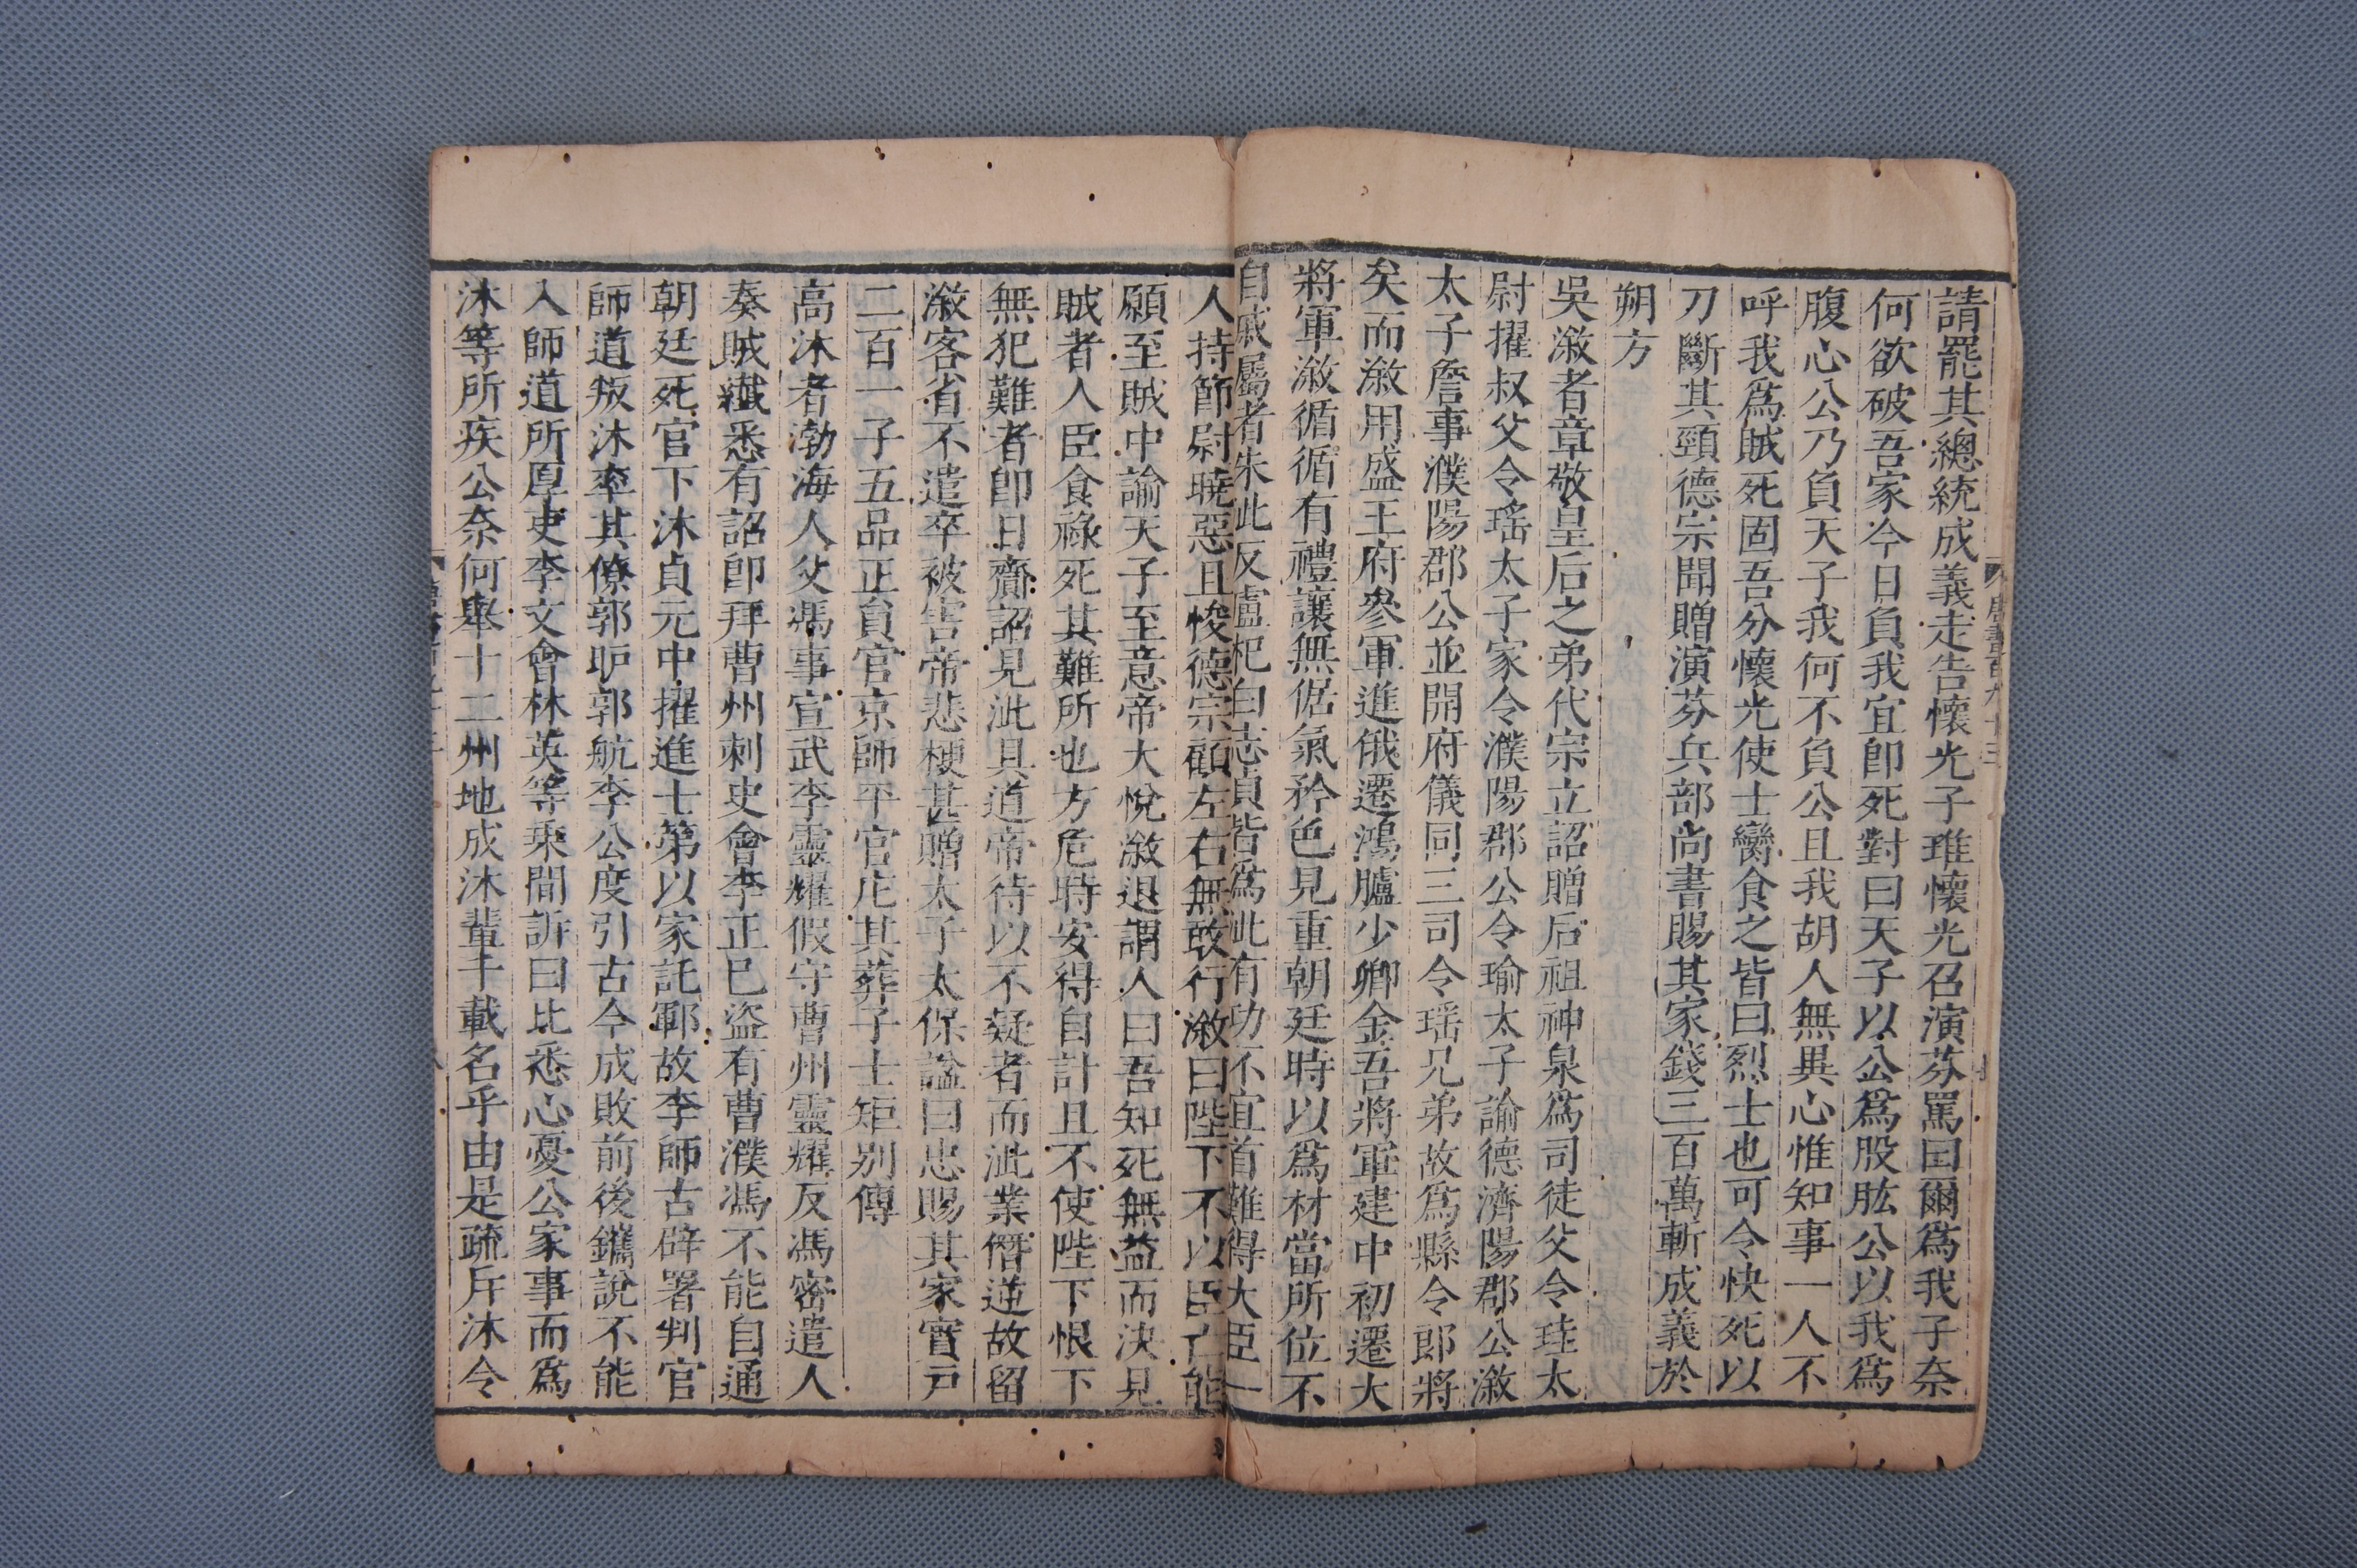 請罷其總統成義走告懷光子琟懷光召演芬罵曰爾爲我子奈
何欲破吾家今日負我宜卽死對曰天子以公爲股肱公以我爲
腹心公乃負天子我何不負公且我胡人無異心惟知事一人不
呼我爲賊死固吾分懷光使士臠食之皆曰烈士也可令快死以
刀斷其頸德宗聞贈演芬兵部尚書賜其家錢三百萬斬成義於
朔方
吳漵者章敬皇后之弟代宗立詔贈后祖神泉爲司徒父令珪太
尉擢叔父令瑤太子家令濮陽郡公令瑜太子諭德濟陽郡公漵
太子詹事濮陽郡公並開府儀同三司令瑤兄弟故爲縣令郎將
矣而漵用盛王府參軍進俄遷鴻臚少卿金吾將軍建中初遷大
將軍漵循循有禮讓無倨氣矜色見重朝廷時以爲材當所位不
自戚屬者朱泚反盧杞白志貞皆爲泚有功不宜首難得大臣一
人持節尉曉惡且悛德宗顧左右無敢行漵曰陛下不以臣亡能
願至賊中諭天子至意帝大悅漵退謂人曰吾知死無益而決見
賊者人臣食祿死其難所也方危時安得自計且不使陛下恨下
無犯難者卽日齎詔見泚具道帝待以不疑者而泚業僭逆故留
漵客省不遣卒被害帝悲梗甚贈太子太保諡曰忠賜其家實戶
二百一子五品正員官京師平官庀其葬子士矩别傳
高沐者渤海人父馮事宣武李靈耀假守曹州靈耀反馮密遣人
奏賊纎悉有詔卽拜曹州刺史會李正已盜有曹濮馮不能自通
朝廷死官下沐貞元中擢進士第以家託鄆故李師古辟署判官
師道叛沐率其僚郭昈郭航李公度引古今成敗前後鑴說不能
入師道所厚吏李文會林英等乘間訴曰比悉心憂公家事而爲
沐等所疾公奈何舉十二州地成沐輩千載名乎由是疏斥沐令
唐書百九十三